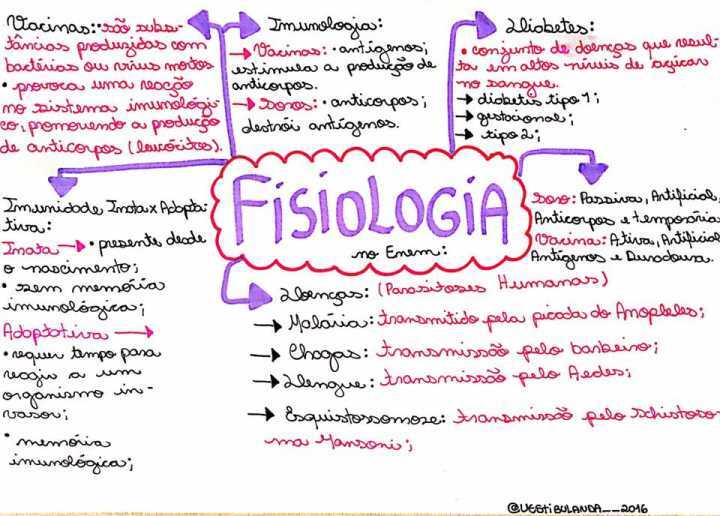 Vacinas: • são subs-
tâncias produzidas com
bactérias ou vírus mortos
• provoca uma reação
no sistema imunológi-
co, promovendo a produção
de anticorpos (leucócitos).
Imunologia:
→ Vacinas: • antígenos;
estimula a produção de
anticorpos.
→ Soros: • anticorpos;
destrói antígenos.
Diabetes:
• conjunto de doenças que resul-
ta em altos níveis de açúcar
no sangue.
→ diabetis tipo 1;
→ gestacional;
→ tipo 2;
Imunidade Inata x Adapta-
tiva:
Inata → • presente desde
o nascimento;
• sem memória
imunológica;
Adaptativa →
• requer tempo para
reagir a um
organismo in-
vasor;
• memória
imunológica;
FISIOLOGIA
no Enem:
Soro: Passiva, Artificial,
Anticorpos e temporária
Vacina: Ativa, Artificial
Antígenos e Duradoura.
Doenças: (Parasitoses Humanas)
→ Malária: transmitido pela picada do Anopheles;
→ Chagas: transmissão pelo barbeiro;
→ Dengue: transmissão pelo Aedes;
→ Esquistossomose: transmissão pelo Schistoso-
ma Mansoni;
@VESTIBULANDA__2016